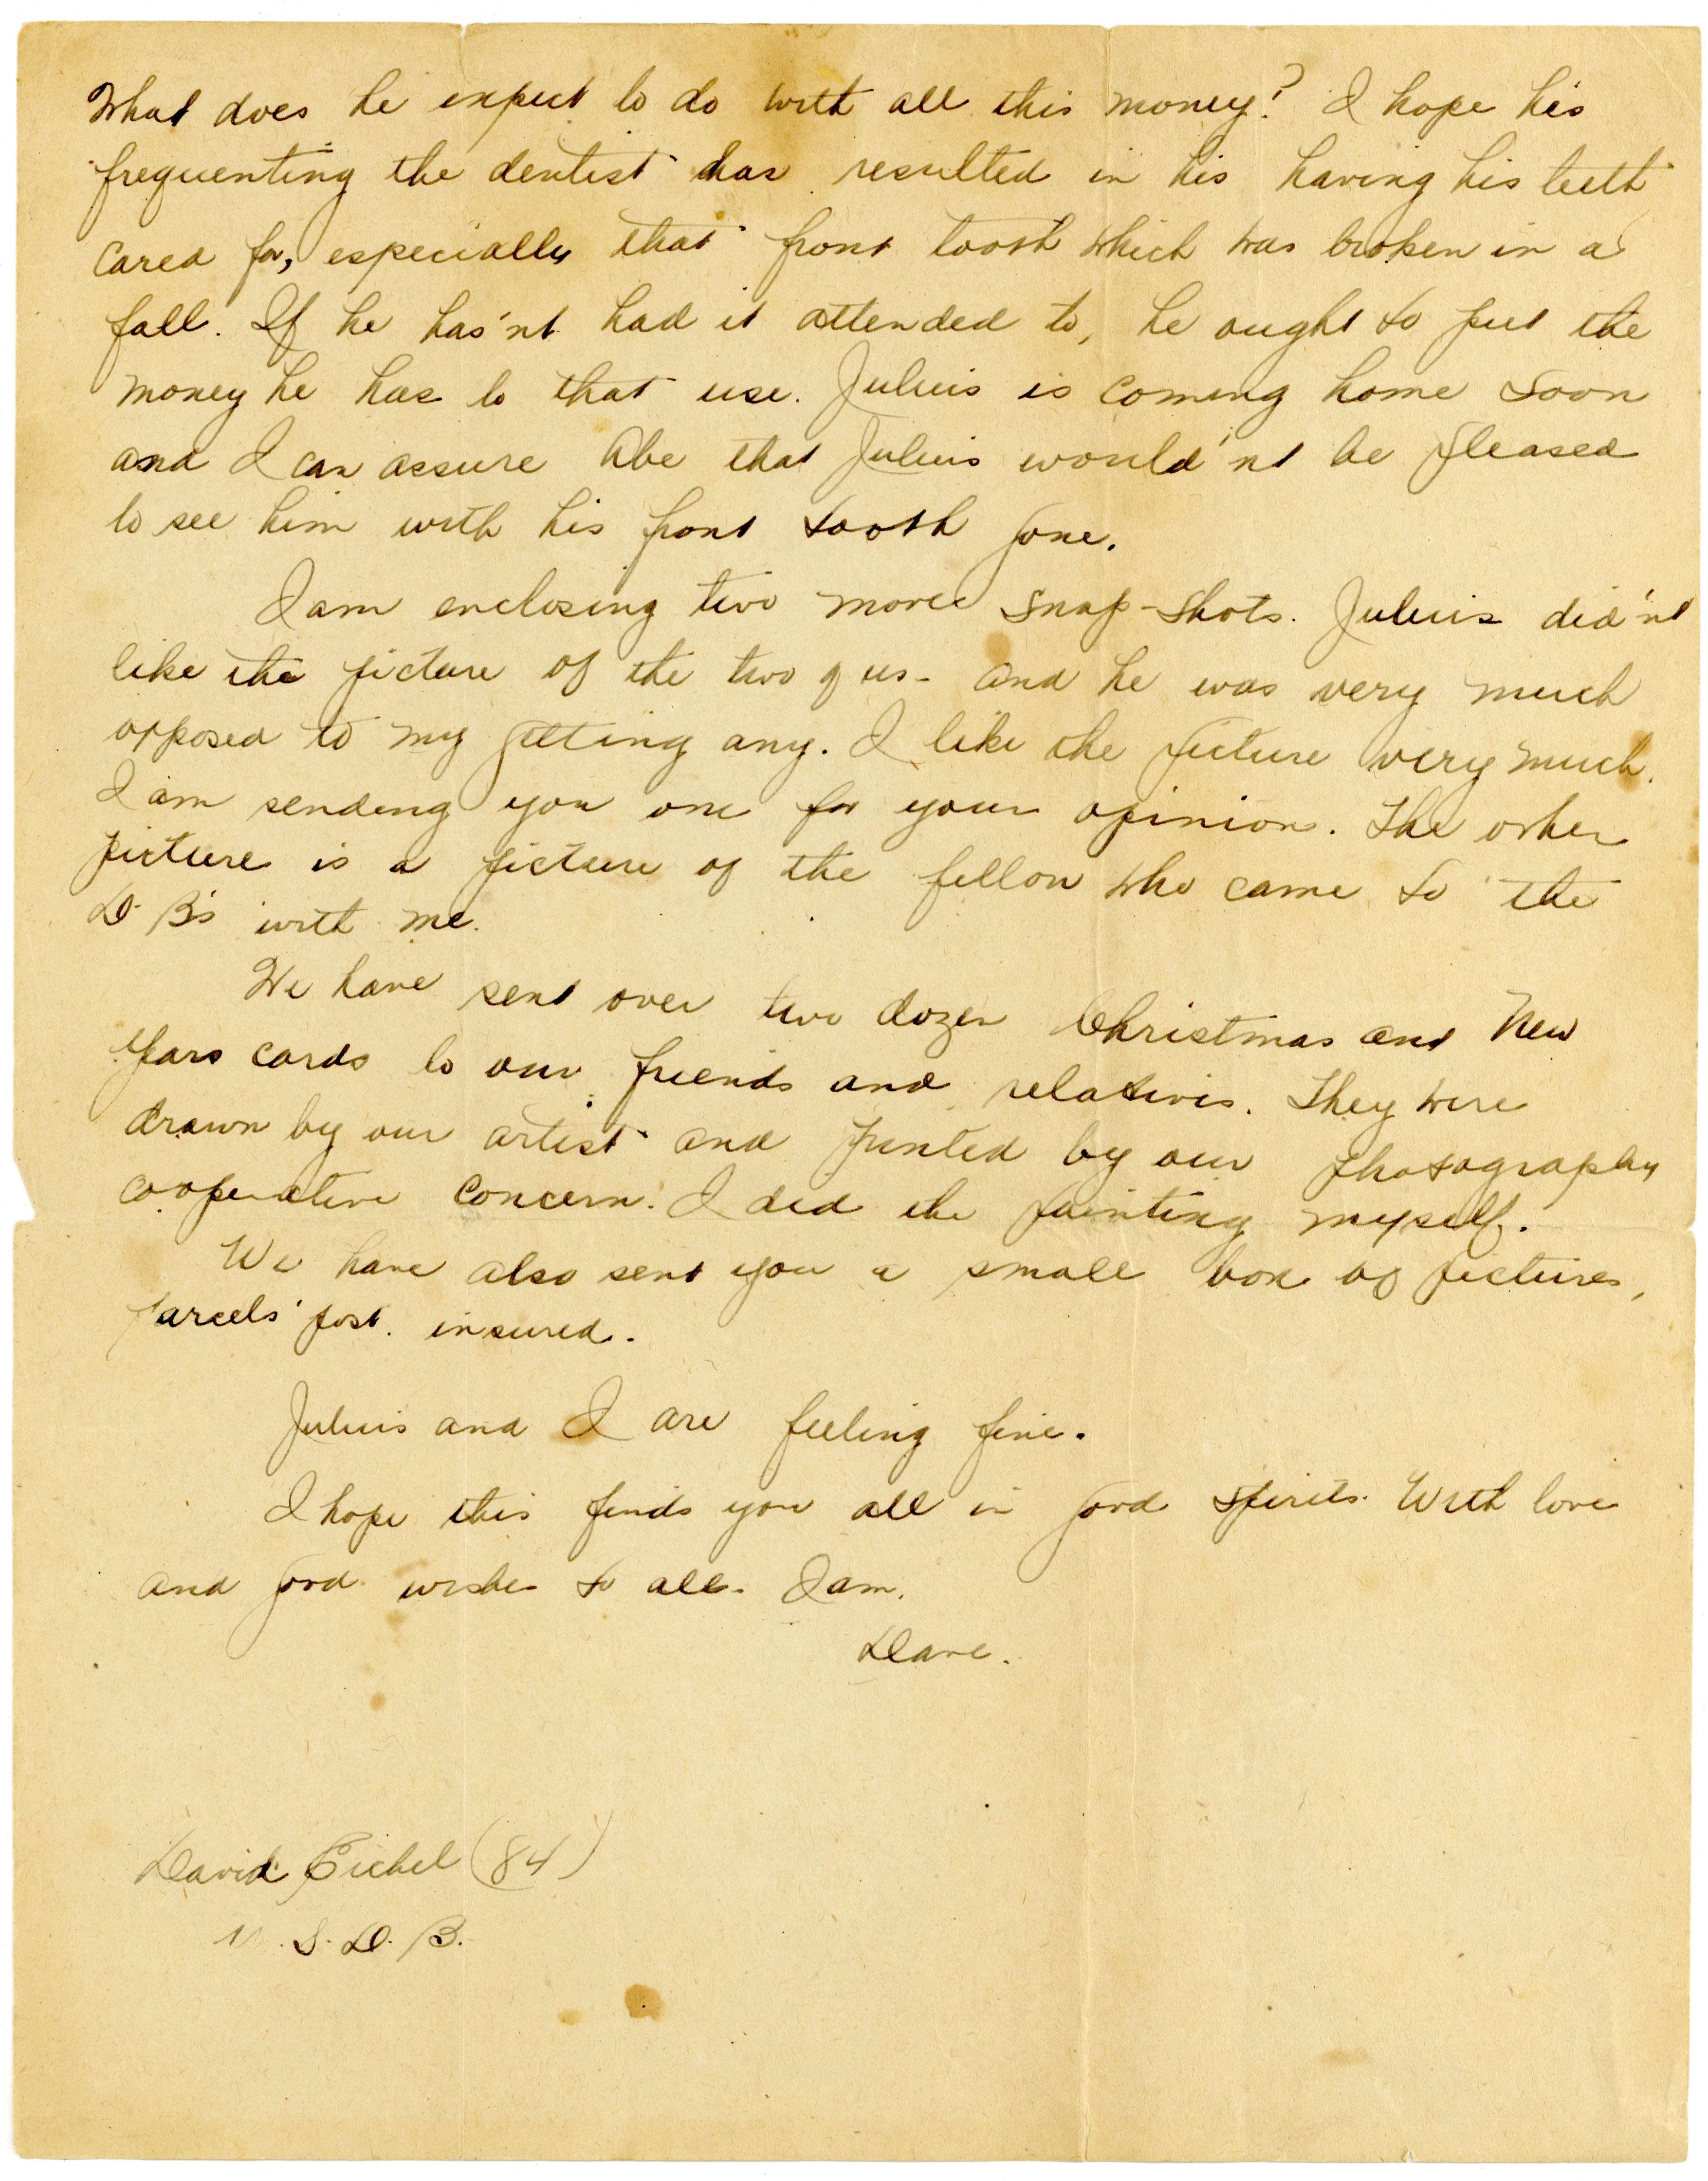 What does he expect to do with all this money? I hope his
frequenting the dentist has resulted in his having his teeth
cared for, especially that front tooth which was broken in a
fall. If he has'nt had it attended to, he ought to put the
money he has to that use. Julius is coming home soon
and I can assure Abe that Julius would'nt be pleased
to see him with his front tooth gone.
I am enclosing two more snap-shots. Julius did'nt
like the picture of the two of us - and he was very much
opposed to my getting any. I like the picture very much.
I am sending you one for your opinion. The other
picture is a picture of the fellow who came to the
D. B's with me.
We have sent over two dozen Christmas and New
Years cards to our friends and relatives. They were
drawn by our artist and printed by our photography
cooperative concern. I did the painting myself.
We have also sent you a small box of pictures,
parcels post. insured.
Julius and I are feeling fine.
I hope this finds you all in good spirits. With love
and good wishes to all. I am.
Dave.
David Eichel (84)
U. S. D. B.